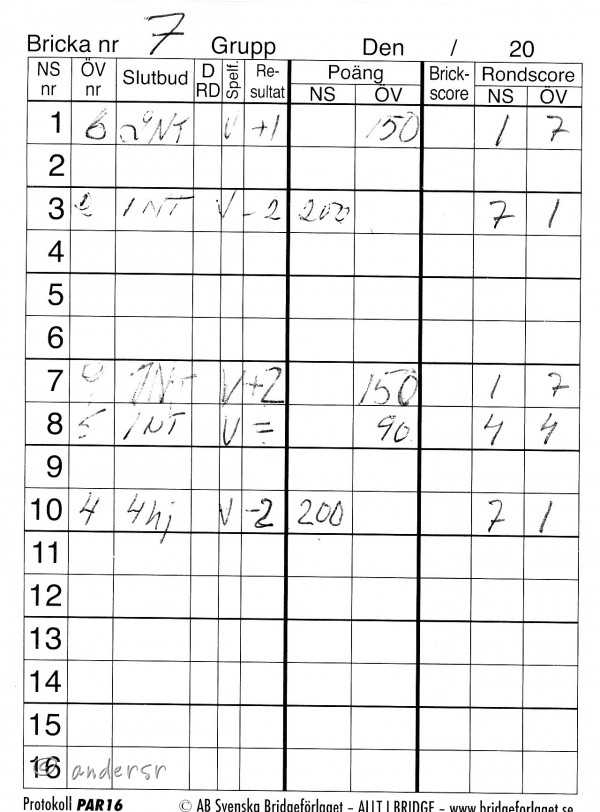 Bricka nr 7 Grupp Den / 20
NS nr ÖV nr Slutbud D RD Spelf. Re-sultat Poäng NS ÖV Brick-score Rondscore NS ÖV
1 6 2NT V +1 150 1 7
2
3 2 1NT V -2 200 7 1
4
5
6
7 9 1NT V +2 150 1 7
8 5 1NT V = 90 4 4
9
10 4 4hj V -2 200 7 1
11
12
13
14
15
16 andersr
Protokoll PAR16 © AB Svenska Bridgeförlaget – ALLT I BRIDGE – www.bridgeforlaget.se